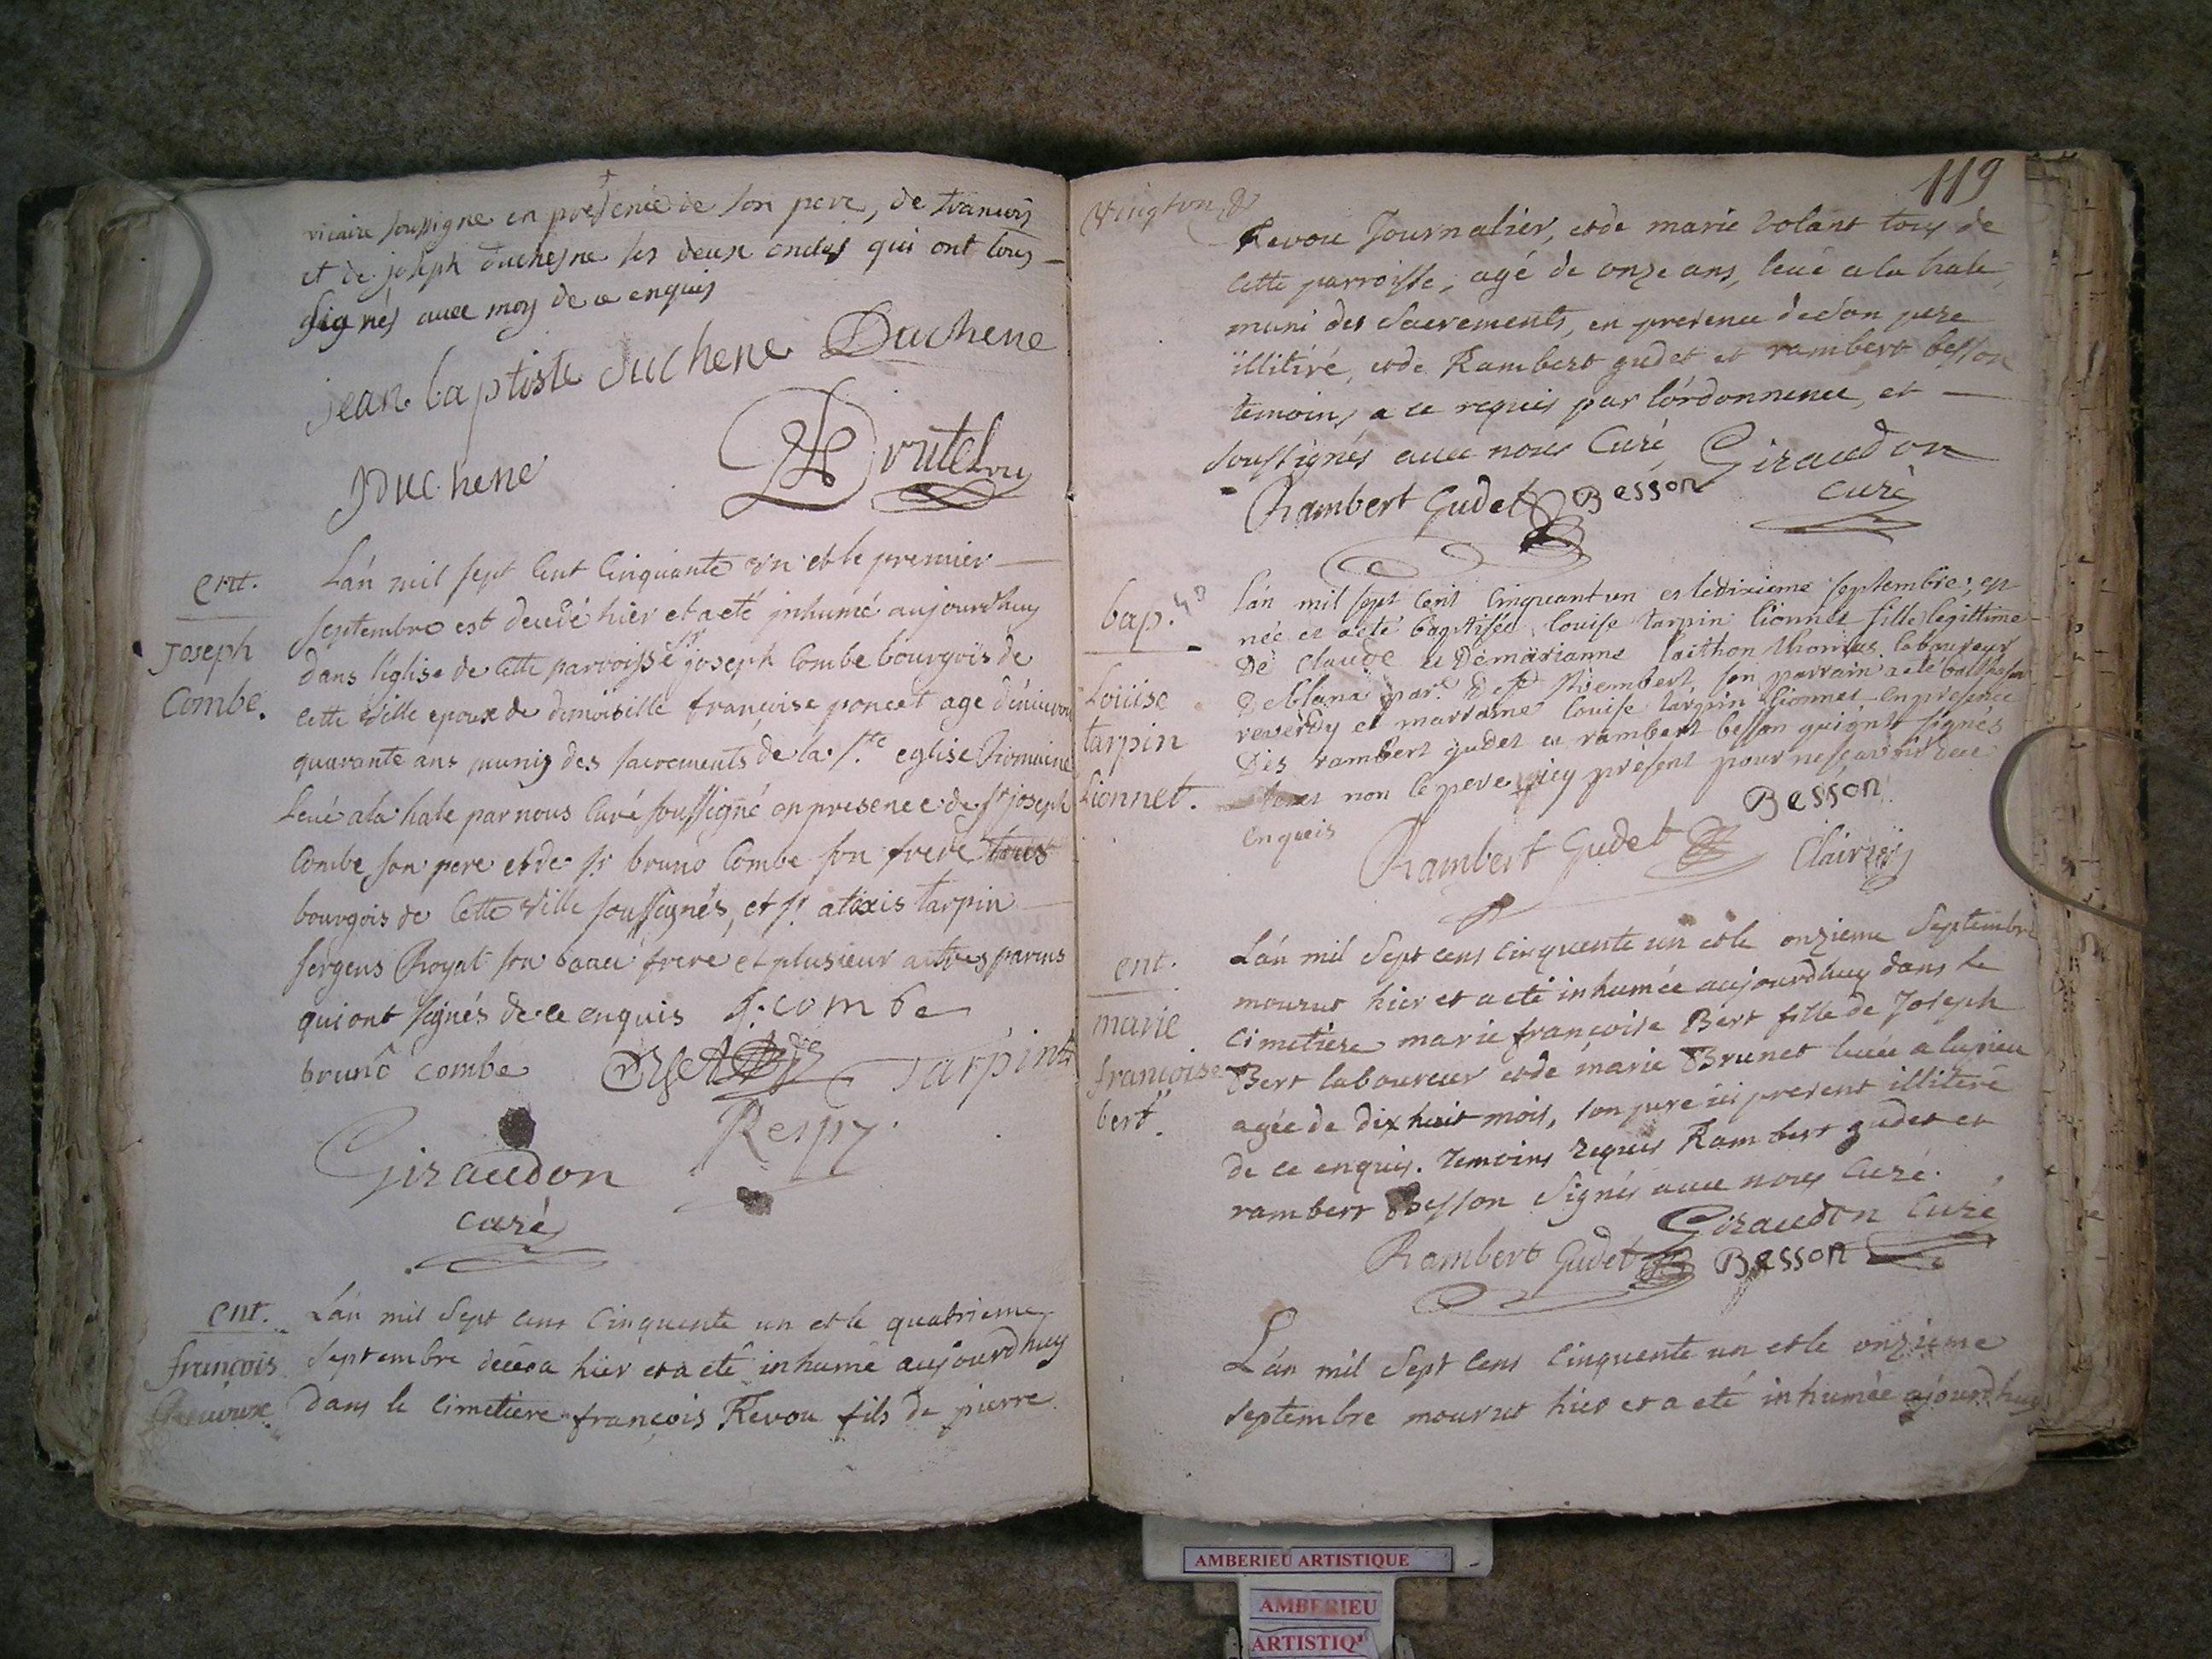 vicaire soussigne en presence de son pere, de francois
et de joseph duchesne ses deux oncles qui ont tous
signés avec moy de ce enquis
jean baptiste duchene Duchene
JDuchene
ent.
Joseph
Combe.
L'an mil sept cent cinquante un et le premier
septembre est decedé hier et a eté inhumé aujourdhuy
dans l'église de cette parroisse sr joseph Combe bourgois de
cette ville epoux de dimoiselle françoise poncet age d'environ
quarante ans munis des sacrements de la ste eglise Romaine
Levé a la hale par nous Curé soussigné en presence de sr joseph
Combe son pere et de sr bruno Combe son frere tous
bourgois de cette ville soussignés, et sr alexis tarpin
sergens Royal son beau frere et plusieur autres parens
qui ont signés de ce enquis J. combe
bruno combe Tarpint
Giraudon
curé
ent.
françois
L'an mil sept cens Cinquente un et le quatrieme
septembre deceda hier et a eté inhumé aujourdhuy
dans le cimetiere françois Revou fils de pierre
119
Revou Journalier, et de marie volant tous de
cette parroisse, agé de onze ans, levé a la hale,
muni des Sacrements, en presence de son pere
illitiré, et de Rambert gudet et rambert besson
temoins a ce requis par l'ordonnence, et
soussignés avec nous Curé, Giraudon
Rambert Gudet Besson curé
bap.
Loüise
tarpin
Lionnet.
L'an mil sept cent cinquant un et le dixieme septembre, est
née et a eté baptisée louise tarpin lionnet fille legittime
De Claude et De marianne laithon thomas laboureur
De blana par. de st Rembert son parrain a eté balthesar
reverdy et marraine louise tarpin lionnet en presence
Des rambert gudet et rambert besson qui ont signés
non le pere icy présent pour ne sçavoir de ce
enqueis
Besson
Rambert Gudet
ent.
marie
françoise
bert.
L'an mil Sept cens cinquente un et le onzieme Septembre
mourut hier et a eté inhumée aujourdhuy dans le
Cimetiere marie françoise Bert fille de Joseph
Bert laboureur et de marie Brunet levée a lupieu
agée de dix huit mois, son pere ici present illitiré
de ce enquis. Temoins requis Rambert gudet et
rambert Besson Signés avec nous Curé.
Giraudon Curé
Rambert Gudet Besson
L'an mil Sept cens Cinquente un et le onzieme
septembre mourut hier et a eté inhumée ajourdhuy
AMBERIEU ARTISTIQUE
AMBERIEU
ARTISTIQ